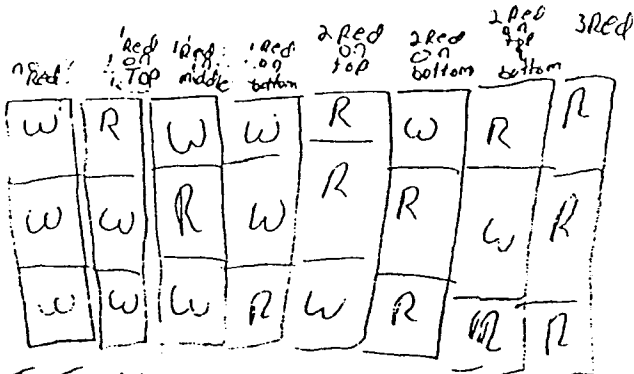 no Red
1 Red on TOP
1 Red on middle
1 Red on bottom
2 Red on top
2 Red on bottom
2 Red on top & bottom
3 Red
W R W W R W R R
W W R W R R W R
W W W R W R R R